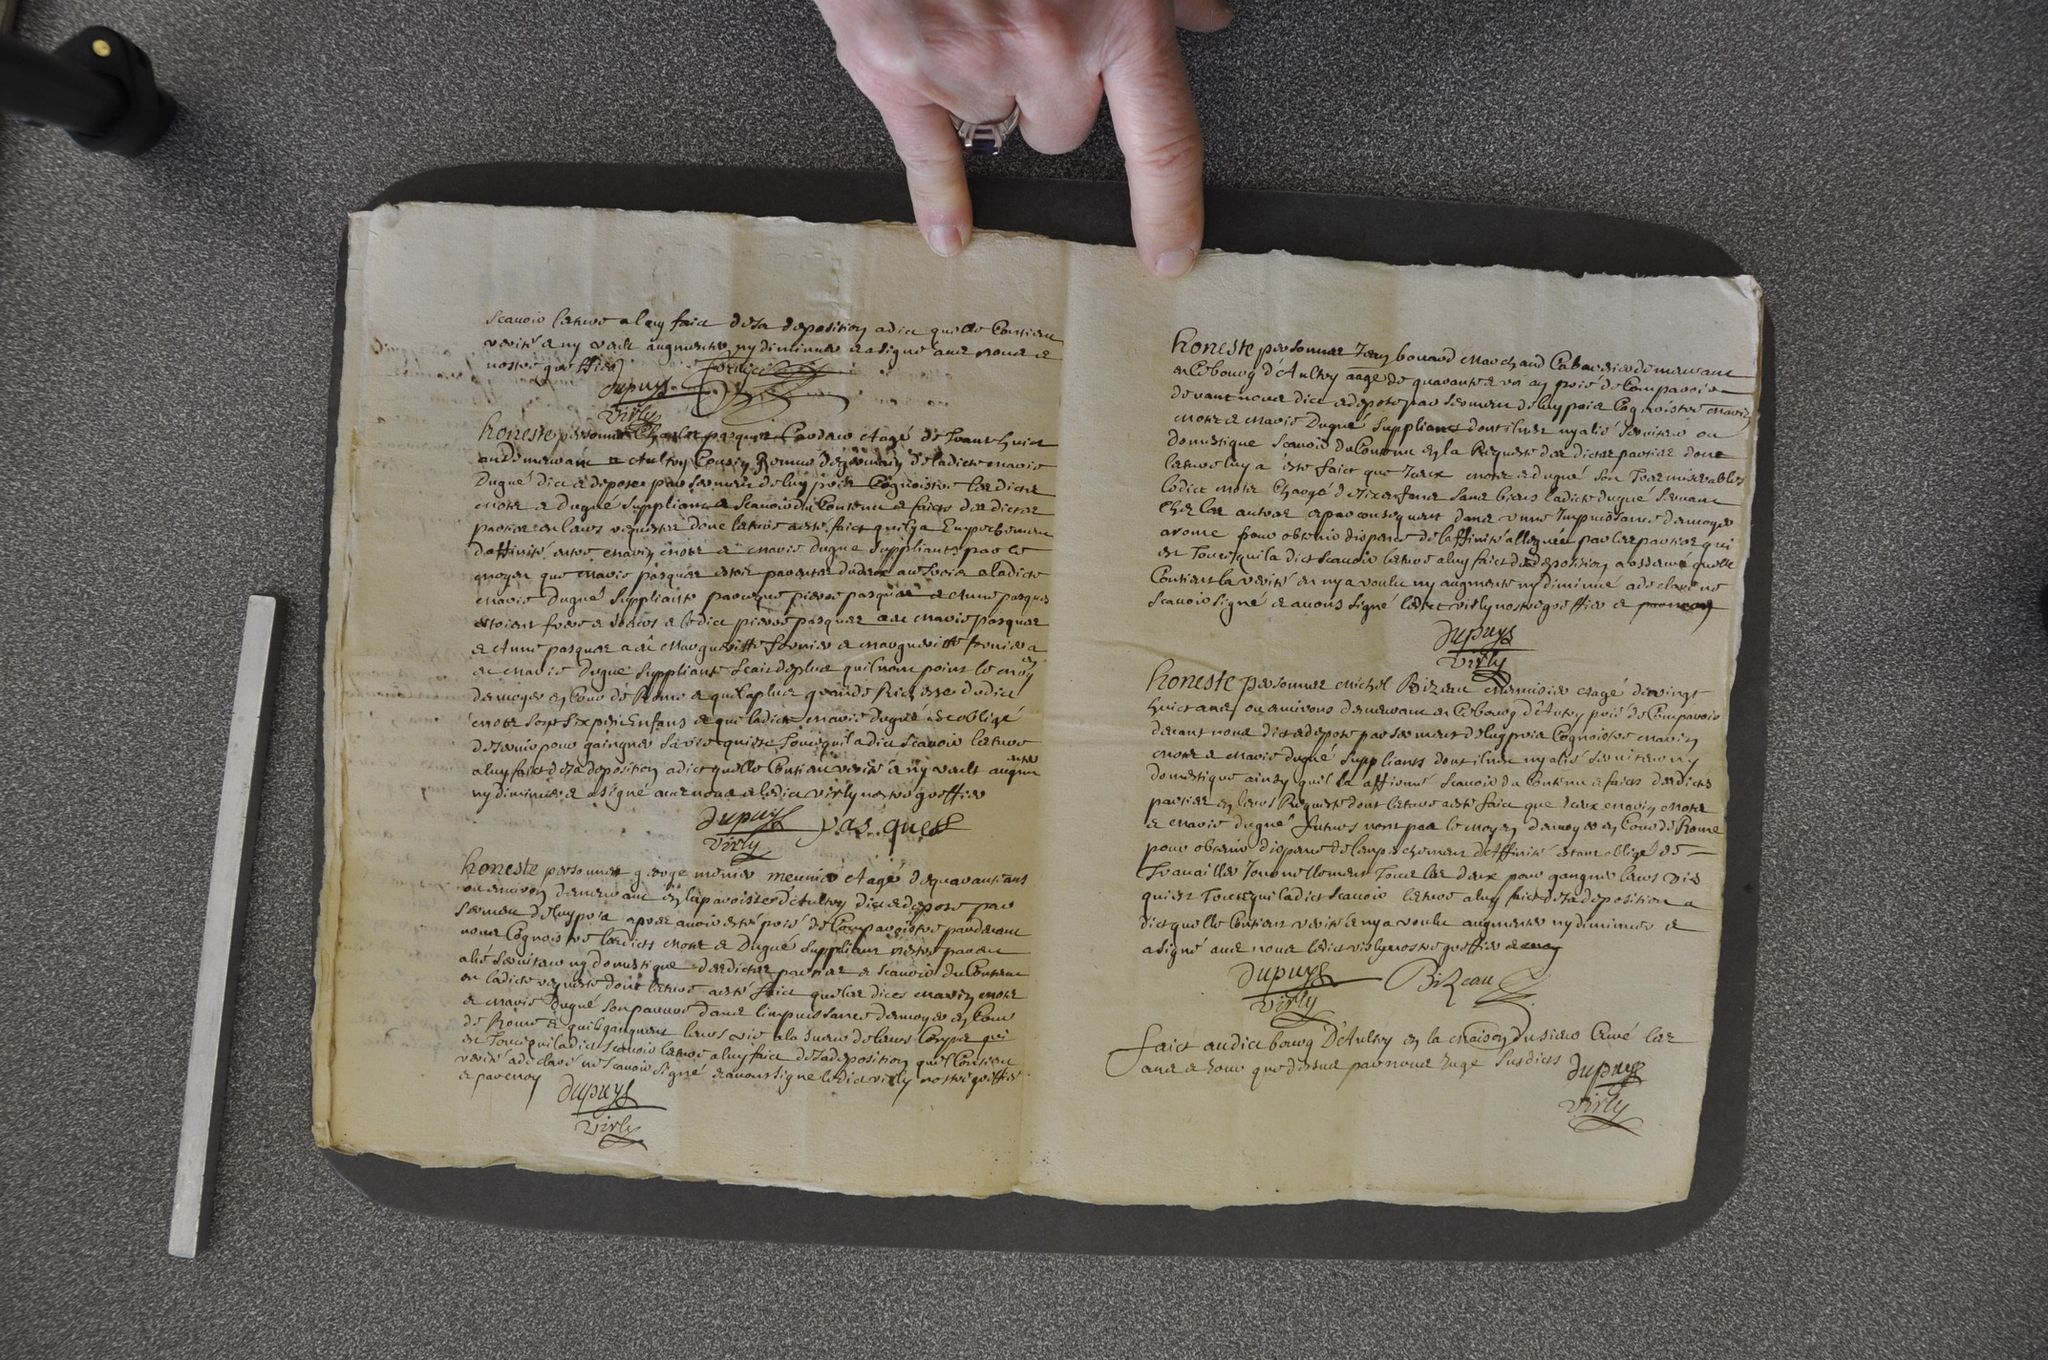 scavoir lecture a luy faict de sa deposition a dict quelle contient
verité et ny veult augmenter ny diminuer et a signé avec nous et
nostre greffier
Dupuys
Virly
honeste personne Charles pasquer aagé de huict
ans demeurant a Aultry Cousin de germain de ladicte marie
Dugué dict et depose par serment de luy pris Cognoistre lesdicts
More et Dugué supplians et scavoir du contenu es faicts desdictes
parties en leurs requeste dont lecture a esté faict quil y a Empeschement
daffinité entre Marin More et Marie Dugué suppliants par le
moyen que Marie pasquer estoit parente du au a ladicte
Marie Dugué suppliante parceque pierre pasquer et Anne pasquer
estoient frere et soeur et ledict pierre pasquer Marie pasquer
et Anne pasquer Marguerite fornier et Marguerite fornier
Marie Dugué suppliante scait de plus quil nont point le moyen
denvoyer en Cour de Rome et quil a plus grande dudict
More sont six petis Enfans et que ladicte Marie Dugué est obligé
de servir pour gaingner sa vie qui est tout cequil a dict scavoir lecture
a luy faict de sa deposition a dict quelle contient verité et ny veult augmenter
ny diminuer et a signé avec nous et ledict virly nostre greffier
Dupuys pasquer
Virly
honeste personne george menier meunier Aagé de quarante ans
ou environ demeurant en la paroisse d'Aultry dict et depose par
serment de luy pris apres avoir esté prié de Comparoistre pardevant
nous Cognoistre lesdicts More et Dugué suppliants nestre parent
alié serviteur ny domestique desdictes parties et scavoir du contenu
en ladicte requeste dont lecture a esté faict que lesdicts Marin More
et Marie Dugué sont pauvres dans limpuissance denvoyer en Cour
de Rome et quils gangnent leurs vie a la sueur de leurs Corps qui
est tout cequil a dict scavoir lecture a luy faict de sa deposition quel Contient
verité a declaré ne scavoir signé et avons signé ledict virly nostre greffier
Dupuys
Virly
honeste personne Jean bouard Marchand Cabaretier demeurant
au bourg d'Aultry aagé de quarante et un an prié de Comparoir
devant nous dict et depose par serment de luy pris Cognoistre Marin
More et Marie Dugué suppliants dont il nest ny alié serviteur ou
domestique scavoir du Contenu en la Requeste desdictes parties dont
lecture luy a esté faict que Iceux More et Dugué sont Tres miserables
ledict More Chargé de six enfans sans biens ladicte Dugué servant
Ches les autres et par consequent dans une Impuissance denvoyer
a rome pour obtenir dispense de laffinité alleguée par les parties qui
est tout cequil a dict scavoir lecture a luy faict de sa deposition a quelle
Contient la verité et ny a voulu ny augmenté ny diminué a declaré ne
scavoir signé et avons signé ledict virly nostre greffier
Dupuys
Virly
honeste personne Michel Bizeau Menuisier Aagé de vingt
huict ans ou environs demeurant au bourg d'Autry prié de Comparoir
devant nous dict et depose par serment de luy pris Cognoistre Marin
More et Marie Dugué suppliants dont il nest ny alié serviteur ny
domestique ainsy quil la affirmé scavoir du Contenu es faicts desdictes
parties en leurs Requeste dont lecture a esté faict que Iceux Marin More
et Marie Dugué futurs nont pas le moyen denvoyer en Cour de Rome
pour obtenir dispense de lempeschement daffinité estant obligé de
Travailler Journellement Tous les deux pour gangner leurs vie
qui est Tout cequil a dict scavoir lecture a luy faict de sa deposition a
dict quelle Contient verité et ny a voulu augmenter ny diminuer et
a signé avec nous ledict virly nostre greffier
Dupuys Bizeau
Virly
faict audict bourg D'Aultry en la maison du sieur Curé les
ans et Jour que dessus par nous Juge susdicts Dupuys
Virly